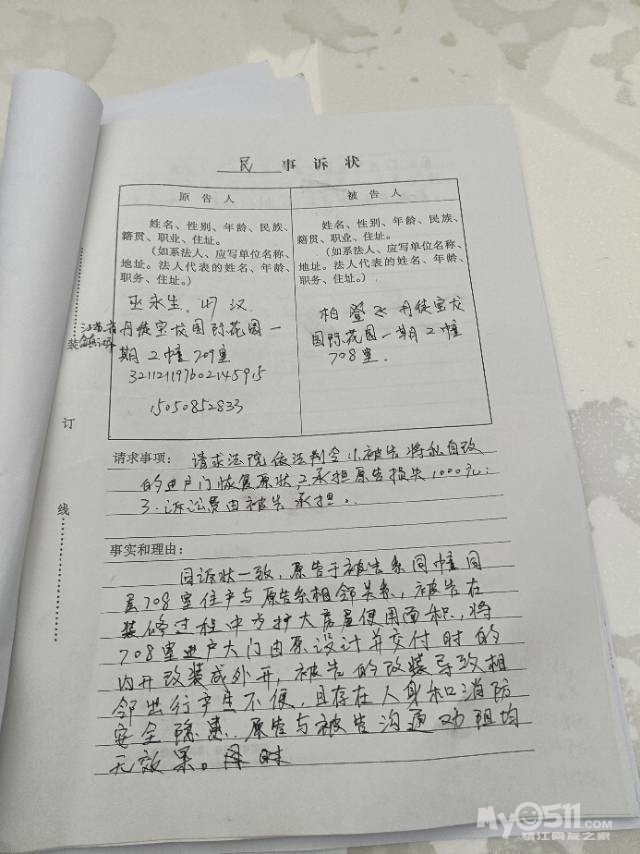 民 事 诉 状
原 告 人
被 告 人
姓名、性别、年龄、民族、
籍贯、职业、住址。
（如系法人、应写单位名称、
地址。法人代表的姓名、年龄、
职务、住址。）
姓名、性别、年龄、民族、
籍贯、职业、住址。
（如系法人、应写单位名称、
地址。法人代表的姓名、年龄、
职务、住址。）
巫永生, 47 汉,
江苏省
丹徒宝龙国际花园一
期 2 幢 709室
321121197602145915
15050852833
柏 登 丹徒宝龙
国际花园一期 2 幢
708室.
装
订
线
请求事项：请求法院依法判令 1.被告将私自改
的进户门恢复原状,2.承担原告损失1000元;
3.诉讼费由被告承担。
事实和理由：
同诉状一致，原告于被告系同幢同
层708室住户与原告系相邻关系，被告在
装修过程中为扩大房屋使用面积，将
708室进户大门由原设计并交付时的
内开改装成外开，被告的改装导致相
邻出行产生不便，且存在人身和消防
安全隐患.原告与被告沟通劝阻均
无效果。
My0511.com
镇江网友之家